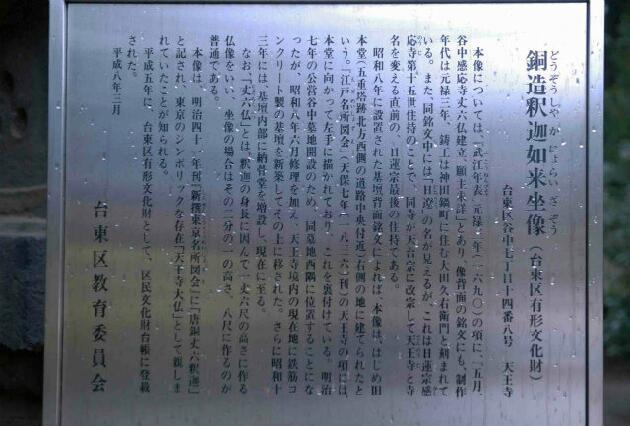 どうぞうしゃかにょらいざぞう
銅造釈迦如来坐像（台東区有形文化財）
台東区谷中七丁目十四番八号　天王寺
本像については、『武江年表』元禄三年（一六九〇）の項に、「五月、
谷中感応寺丈六仏建立、願主未詳」とあり、像背面の銘文にも、制作
年代は元禄三年、鋳工は神田鍋町に住む太田久右衛門と刻まれて
いる。また、同銘文中には「日遼」の名が見えるが、これは日蓮宗感
応寺第十五世住持のことで、同寺が天台宗に改宗して天王寺と寺
名を変える直前の、日蓮宗最後の住持である。
昭和八年に設置された基壇背面銘文によれば、本像は、はじめ旧
本堂（五重塔跡北方西側の道路中央付近）右側の地に建てられたと
いう。『江戸名所図会』（天保七年〔一八三六〕刊）の天王寺の項には、
本堂に向かって左手に描かれており、これを裏付けている。明治
七年の公営谷中墓地開設のため、同墓地西隅に位置することにな
ったが、昭和八年六月修理を加え、天王寺境内の現在地に鉄筋コ
ンクリート製の基壇を新築してその上に移された。さらに昭和十
三年には、基壇内部に納骨堂を増設し、現在に至る。
なお、「丈六仏」とは、釈迦の身長に因んで一丈六尺の高さに作る
仏像をいい、坐像の場合はその二分の一の高さ、八尺に作るのが
普通である。
本像は、明治四十一年刊『新撰東京名所図会』に「唐銅丈六釈迦」
と記され、東京のシンボリックな存在「天王寺大仏」として親しま
れていたことが知られる。
平成五年に、台東区有形文化財として、区民文化財台帳に登載
された。
平成八年三月
台東区教育委員会